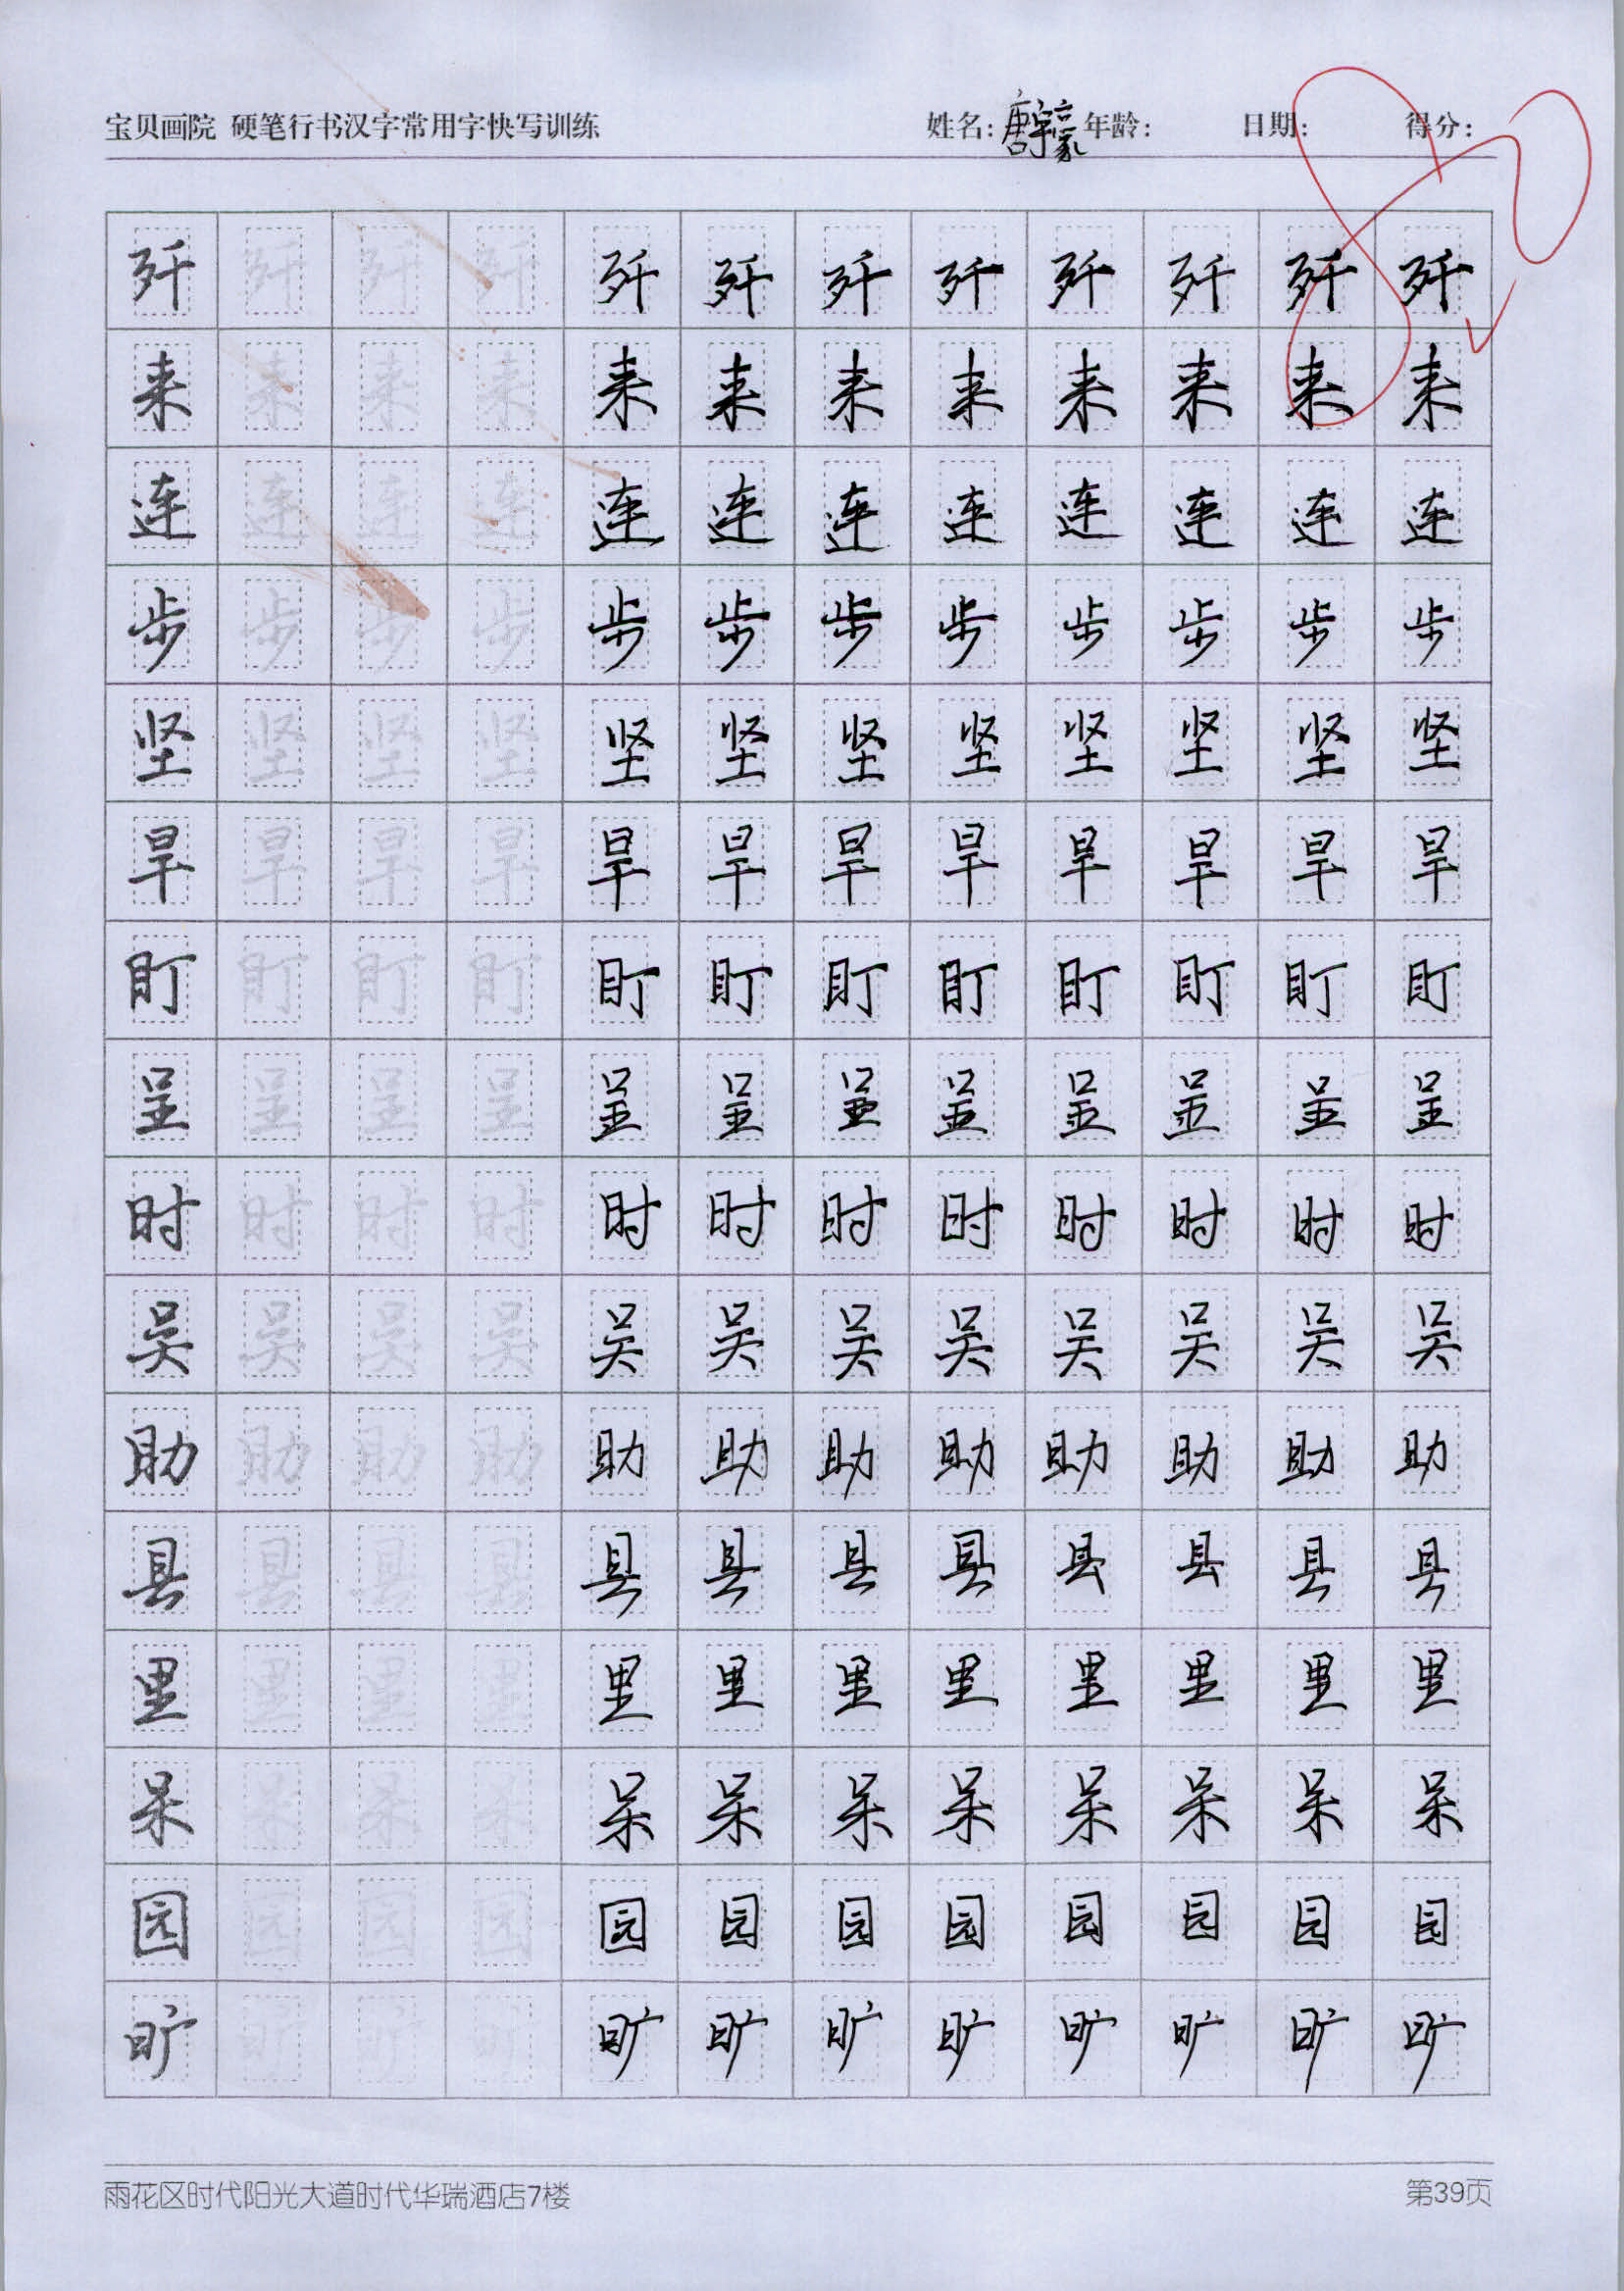 宝贝画院 硬笔行书汉字常用字快写训练 姓名：唐宇豪 年龄： 日期： 得分：
歼 歼 歼 歼 歼 歼 歼 歼 歼 歼 歼 歼
来 来 来 来 来 来 来 来 来 来 来 来
连 连 连 连 连 连 连 连 连 连 连 连
步 步 步 步 步 步 步 步 步 步 步 步
坚 坚 坚 坚 坚 坚 坚 坚 坚 坚 坚 坚
旱 旱 旱 旱 旱 旱 旱 旱 旱 旱 旱 旱
盯 盯 盯 盯 盯 盯 盯 盯 盯 盯 盯 盯
呈 呈 呈 呈 呈 呈 呈 呈 呈 呈 呈 呈
时 时 时 时 时 时 时 时 时 时 时 时
吴 吴 吴 吴 吴 吴 吴 吴 吴 吴 吴 吴
助 助 助 助 助 助 助 助 助 助 助 助
县 县 县 县 县 县 县 县 县 县 县 县
里 里 里 里 里 里 里 里 里 里 里 里
呆 呆 呆 呆 呆 呆 呆 呆 呆 呆 呆 呆
园 园 园 园 园 园 园 园 园 园 园 园
旷 旷 旷 旷 旷 旷 旷 旷 旷 旷 旷 旷
雨花区时代阳光大道时代华瑞酒店7楼 第39页